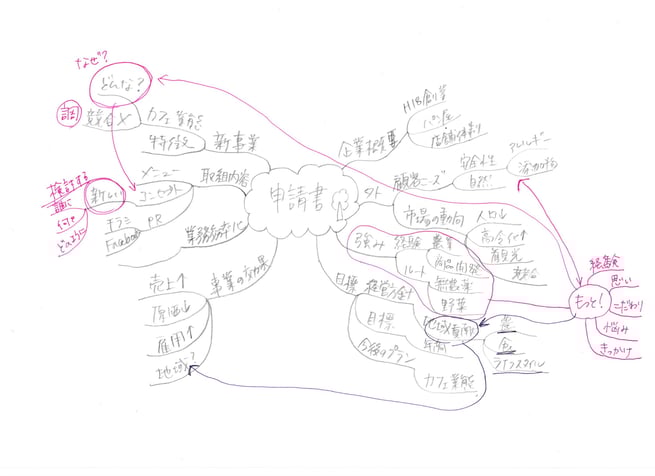 なぜ?
どんな?
調
競合
カフェ業態
特徴
新事業
メニュー
取組内容
コンセプト
新しい
検討する
誰に
何を
どのように
チラシ
PR
Facebook
業務効率化
事業の効果
売上↑
原価↓
雇用↑
地域?
申請書
企業概要
H18創業
パン屋
店舗
顧客ニーズ
安全性
自然
アレルギー
添加物
市場の動向
人口↓
高令化↑
観光
強み
経験
農業
ルート
商品開発
無農薬
野菜
目標
経営方針
地域貢献
農
食
ライフスタイル
目標
今後のプラン
カフェ業態
もっと!
経験
思い
こだわり
悩み
きっかけ